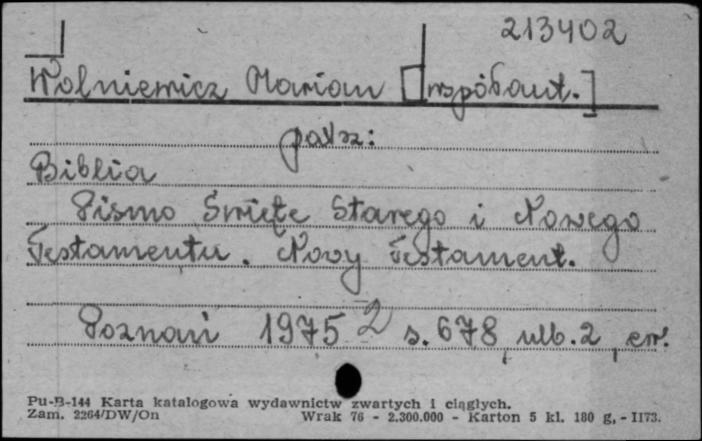 213402
Wolniewicz Marian [współaut.]
patrz:
Biblia
Pismo Święte Starego i Nowego
Testamentu. Nowy Testament.
Poznań 1975 2 s. 678, nlb. 2, err.
Pu-B-144 Karta katalogowa wydawnictw zwartych i ciągłych.
Zam. 2264/DW/On Wrak 76 - 2.300.000 - Karton 5 kl. 180 g, - II73.